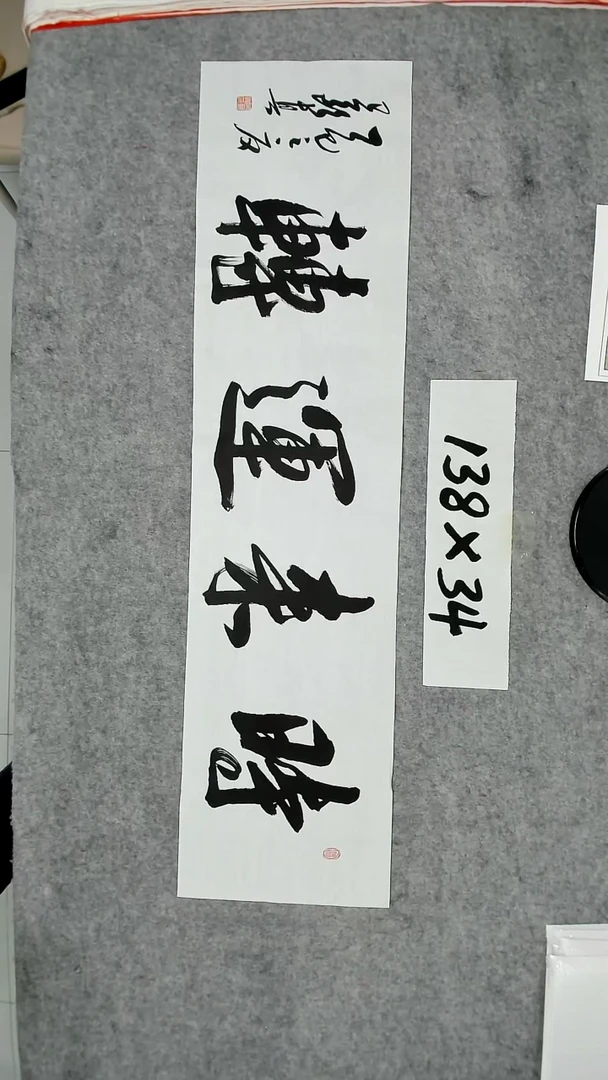 時来運轉
138×34